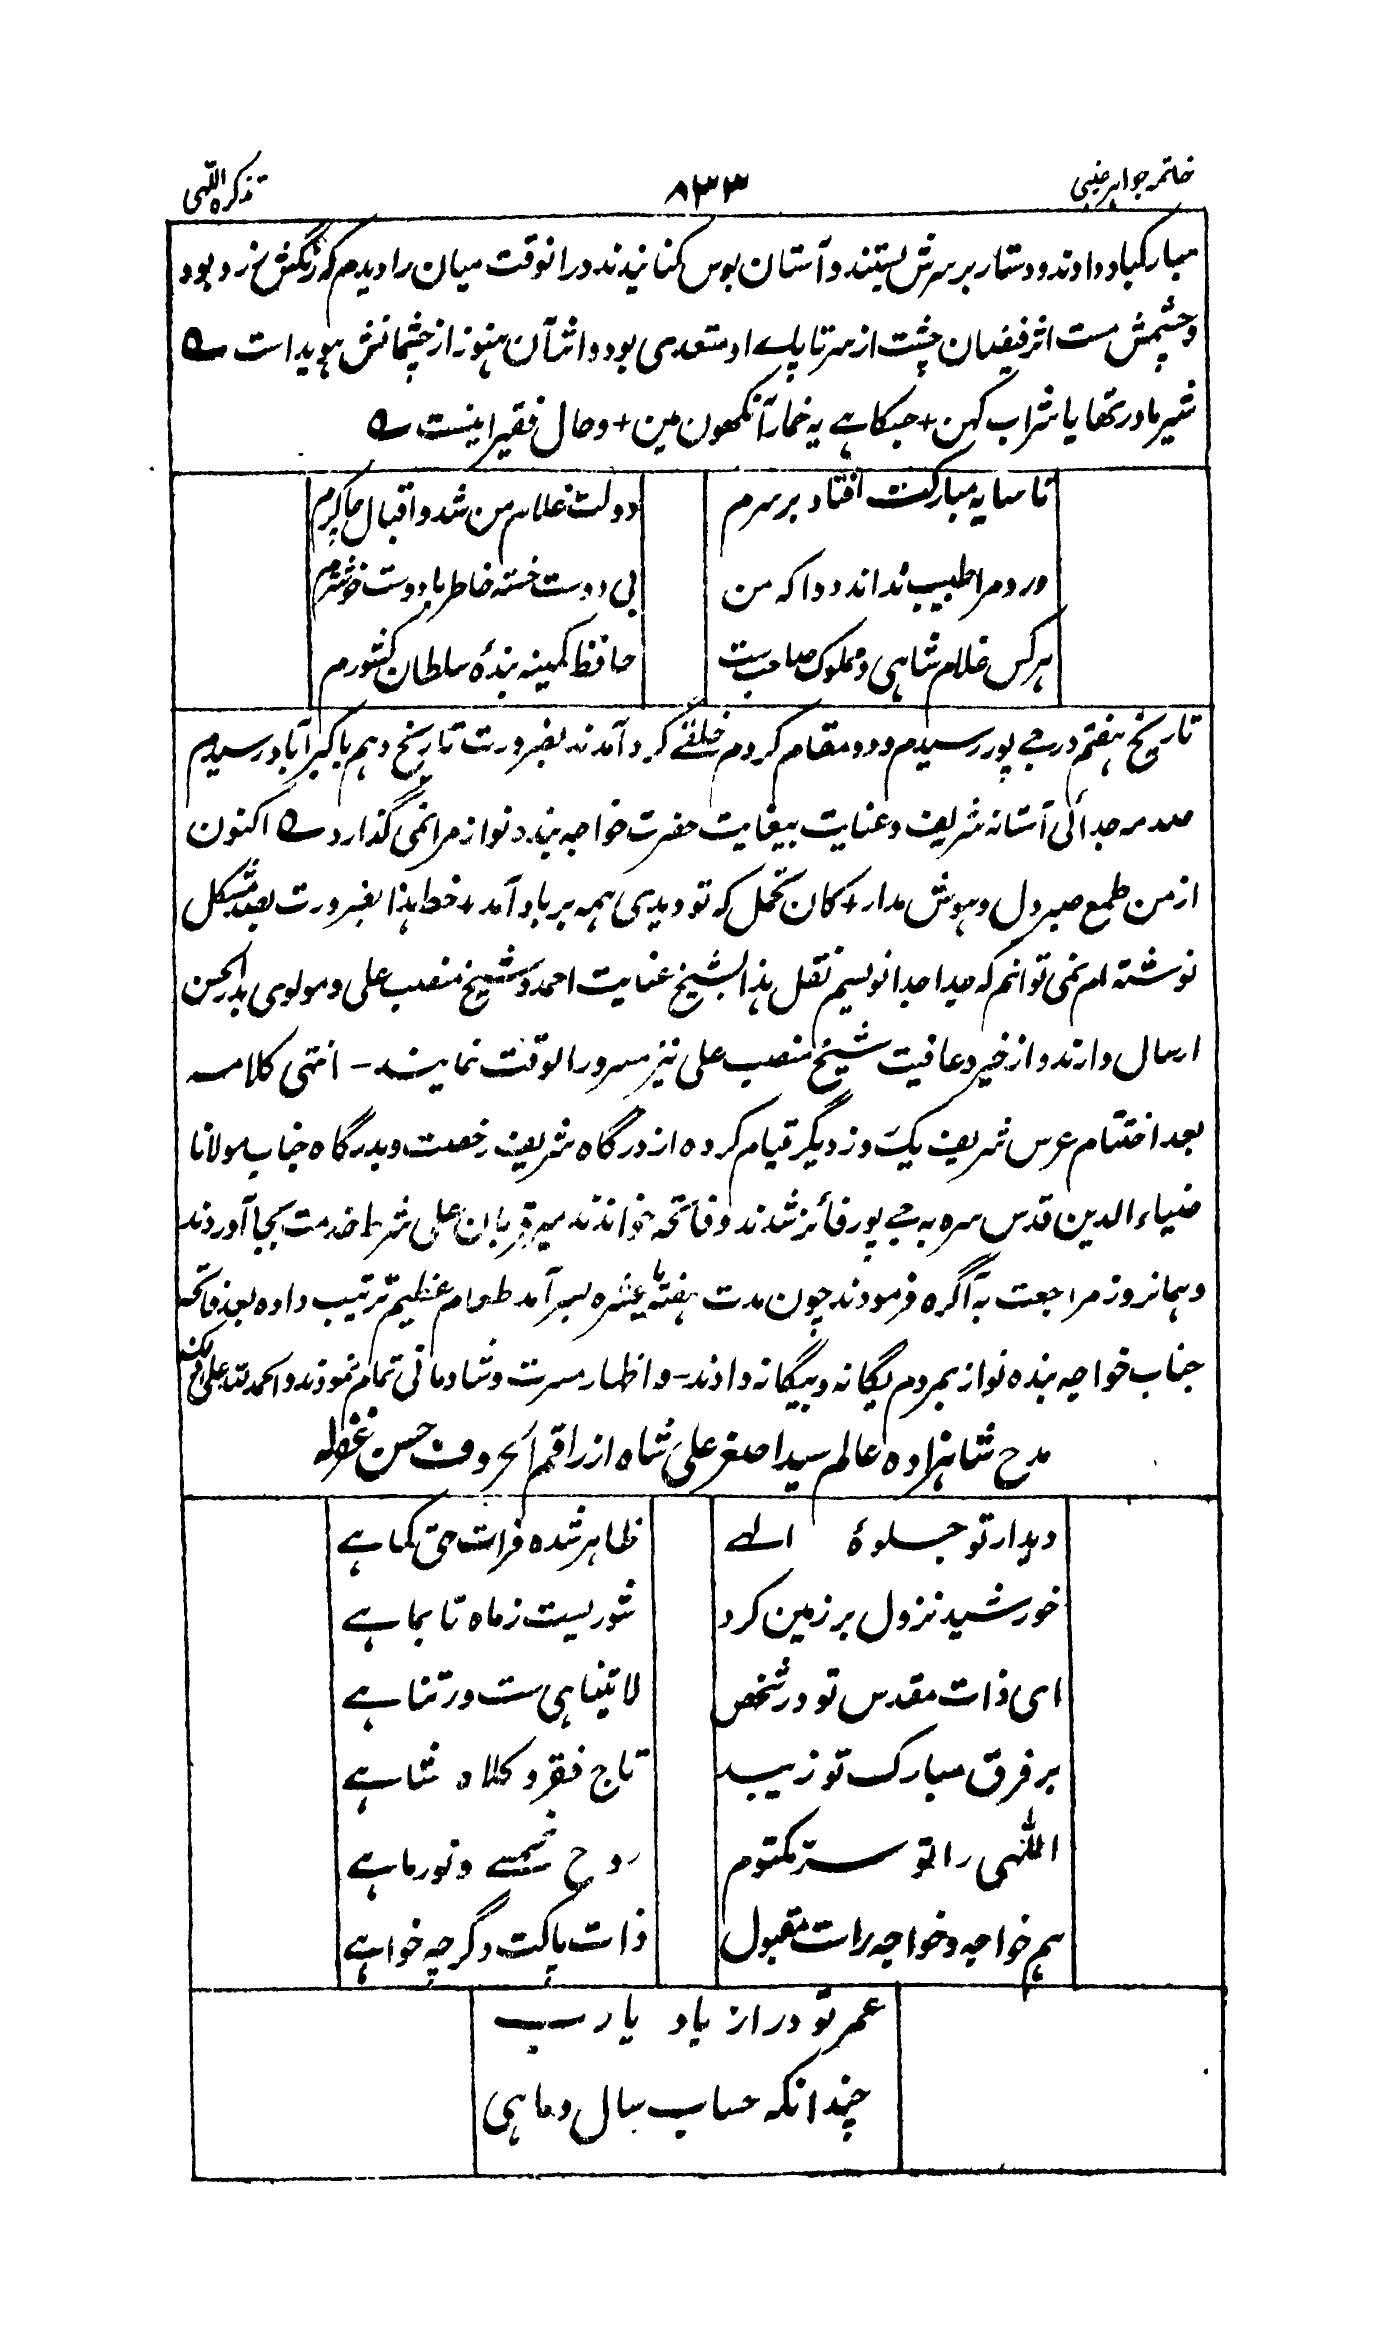 خاتمہ جواہر غیبی
۸۳۳
تذکرہ اللّٰہی
مبارکباد دادند و دستار بر سرش بستند و آستان بوس کنانیدند درانوقت میان را دیدم کہ رنگش زرد بود
و چشمش مست اثر فیضان چشت از سر تا پاے او متعدی بود و اثر آن ہنوز از چشمانش ہویداست ے
شیر مادر تھا یا شراب کہن + جسکا ہے یہ خمار آنکھون مین + و حال فقیر اینست ے
تا سایہ مبارکت افتاد بر سرم
دولت غلام من شد و اقبال چاکرم
درد مرا طبیب نداند دوا کہ من
بی دوست خستہ خاطر با دوست خوشترم
ہر کس غلام شاہی و مملوک صاحبیست
حافظ کمینہ بندۂ سلطان کشورم
تاریخ ہفتم در جے پور رسیدم و دو مقام کردم خلقے گرد آمدند بضرورت تاریخ دہم باکبرآباد رسیدم
صدمہ جدائی آستانہ شریف و عنایت بیغایت حضرت خواجہ بندہ نواز مرا نمی گذارد ے اکنون
از من طمع صبر دل و ہوش مدار + کان تحمل کہ تو دیدی ہمہ برباد آمد + خط ہذا بضرورت بصد مشکل
نوشتہ ام نمی توانم کہ جدا جدا نویسم نقل ہذا بشیخ عنایت احمد و شیخ منصب علی و مولوی بدرالحسن
ارسال دارند و از خیر و عافیت شیخ منصب علی نیز مسرور الوقت نمایند – انتہی کلامہ
بعد اختتام عرس شریف یک روز دیگر قیام کردہ از درگاہ شریف رخصت و بدرگاہ جناب مولانا
ضیاء الدین قدس سرہ بہ جے پور فائز شدند و فاتحہ خواندند میر قربان علی شرائط خدمت بجا آوردند
و ہمانروز مراجعت بہ آگرہ فرمودند چون مدت ہفتہ یا عشرہ بسر آمد طعام عظیم ترتیب دادہ بعد فاتحہ
جناب خواجہ بندہ نواز بمردم یگانہ و بیگانہ دادند – و اظہار مسرت و شادمانی تمام نمودند و الحمد للہ علی ذلک
مدح شاہزادہ عالم سید اصغر علی شاہ از راقم الحروف حسن غفرلہ
دیدار تو جلوۂ الٰہے
ظاہر شدہ فرات حق کماہے
خورشید نزول بر زمین کرد
شوریست ز ماہ تا بماہے
ای ذات مقدس تو در شخص
لاتناہی ست در تناہے
بر فرق مبارک تو زیبد
تاج فقر و کلاہ شاہے
اللّٰہی را تو سرّ مکتوم
روح شمسے و نور ماہے
ہم خواجہ و خواجہ راست مقبول
ذات پاکت دگر چہ خواہے
عمر تو دراز باد یا رب
چندانکہ حساب سال و ماہی